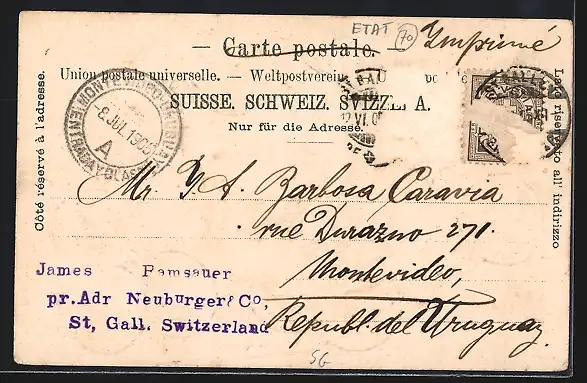 ETAT 70
Imprimé
— Carte postale. —
Union postale universelle. — Weltpostverein
SUISSE. SCHWEIZ. SVIZZE A.
Nur für die Adresse.
Côté réservé à l'adresse.
Lato riservato all' indirizzo
8 JUL 1905
A
Mr. J A. Barbosa Caravia
rue Durazno 271.
Montevideo,
Republ. del Uruguay
James Ramsauer
pr. Adr Neuburger & Co,
St, Gall. Switzerland
SG